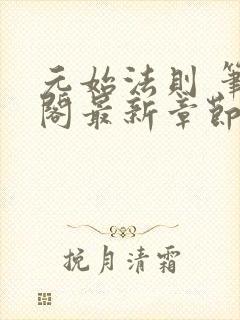 元始法則 筆
閣最新章節
挽月清霜